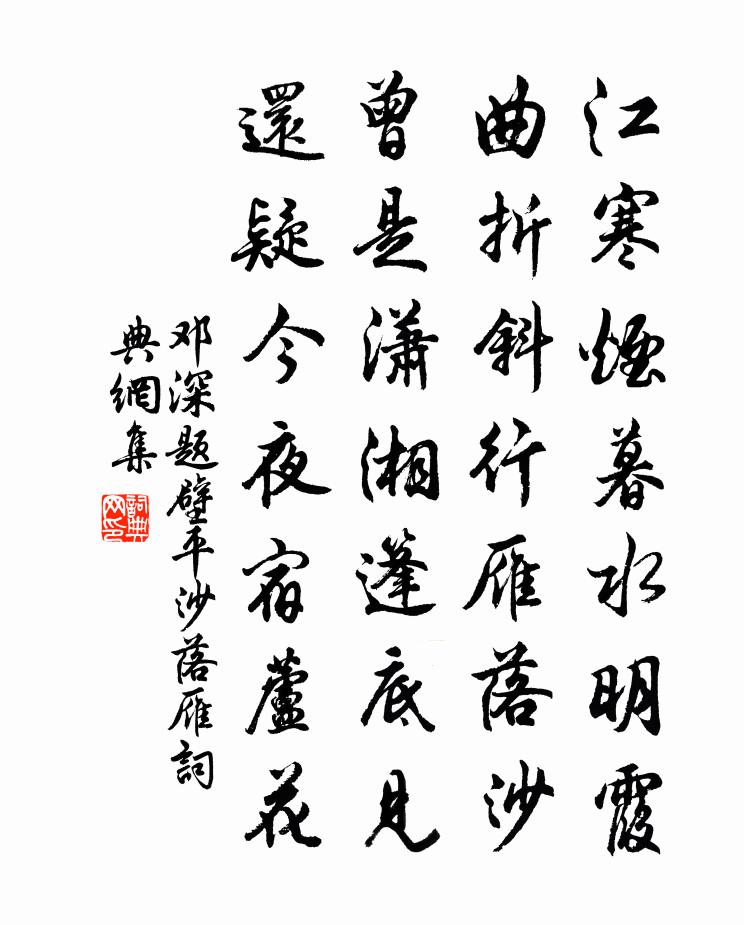 江寒煙暮水明霞
曲折斜行雁落沙
曾是瀟湘蓬底見
還疑今夜宿蘆花
邓深题壁平沙落雁詞
典網集
詞典网印